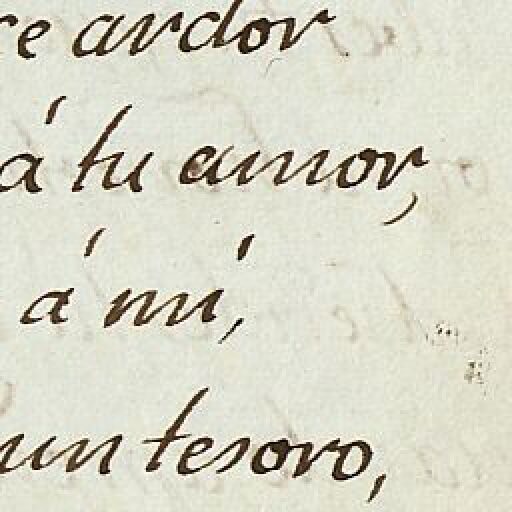 ce ardor
á tu amor,
á mí,
un tesoro,